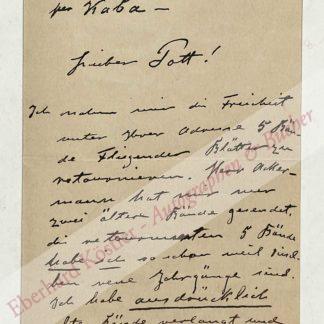 per Kaba –
Lieber Gott!
Ich nahm mir die Freiheit
unter Ihrer Adresse 5 Bän
de Fliegender Blätter zu
retournieren. Herr Acker-
mann hat mir nur
zwei ältere Bände gesendet,
die retournierten 5 Bände
habe ich so schon weil
den neue Jahrgänge sind.
Ich habe ausdrücklich
alte Bände verlangt und
Eberhard Köstler - Autographen & Bücher